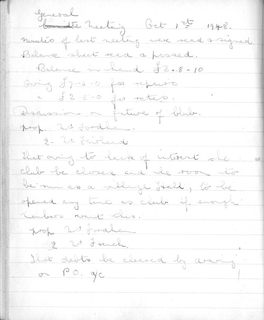 General
Meeting Oct 1st 1948.
Minutes of last meeting were read & signed.
Balance sheet read & passed.
Balance in hand £2-8-10
Owing £ for repairs
" £ for rates.
Discussion on future of Club.
prop. Mr
2. Mr
That owing to lack of interest the
club be closed and the room
be run as a village Hall, to be
opened any time as club if enough
members want this.
prop Mr
2 Mr
That debts be cleared by drawing
on P.O. a/c